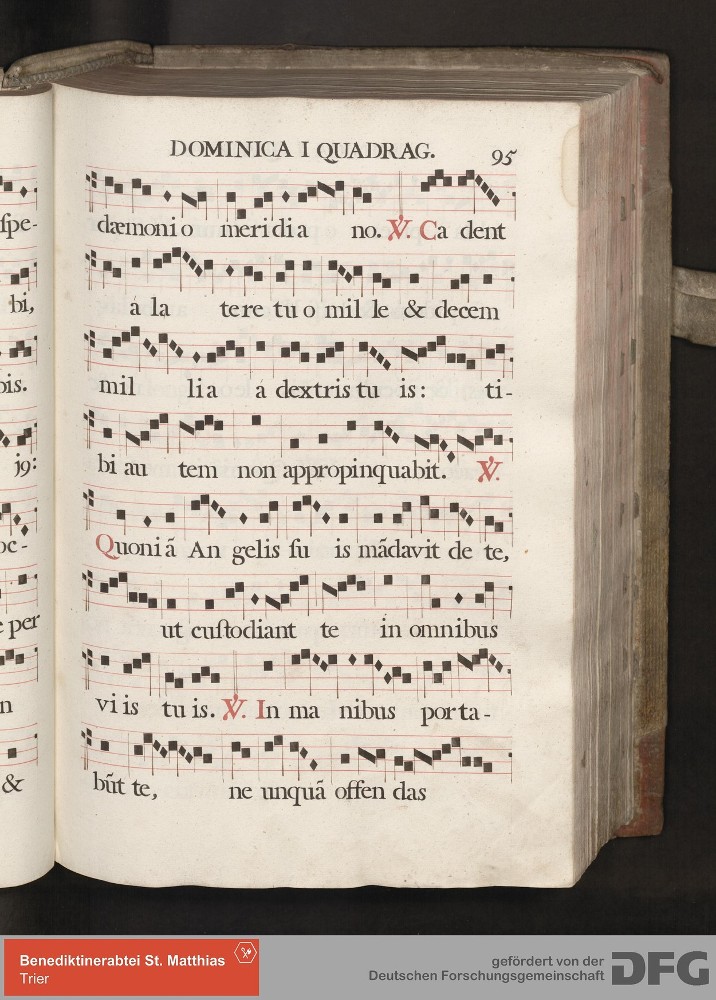 DOMINICA I QUADRAG. 95
dæmoni o meri di a no. ℣. Ca dent
á la te re tu o mil le & decem
mil li a á dextris tu is: ti-
bi au tem non appropinquabit. ℣.
Quoniã An gelis ſu is mãdavit de te,
ut cuſtodiant te in omnibus
vi is tu is. ℣. In ma nibus porta-
bũt te, ne unquã offen das
ſpe-
bi,
bis.
jꝰ:
oc-
e per
n
&
Benediktinerabtei St. Matthias
Trier
gefördert von der
Deutschen Forschungsgemeinschaft DFG